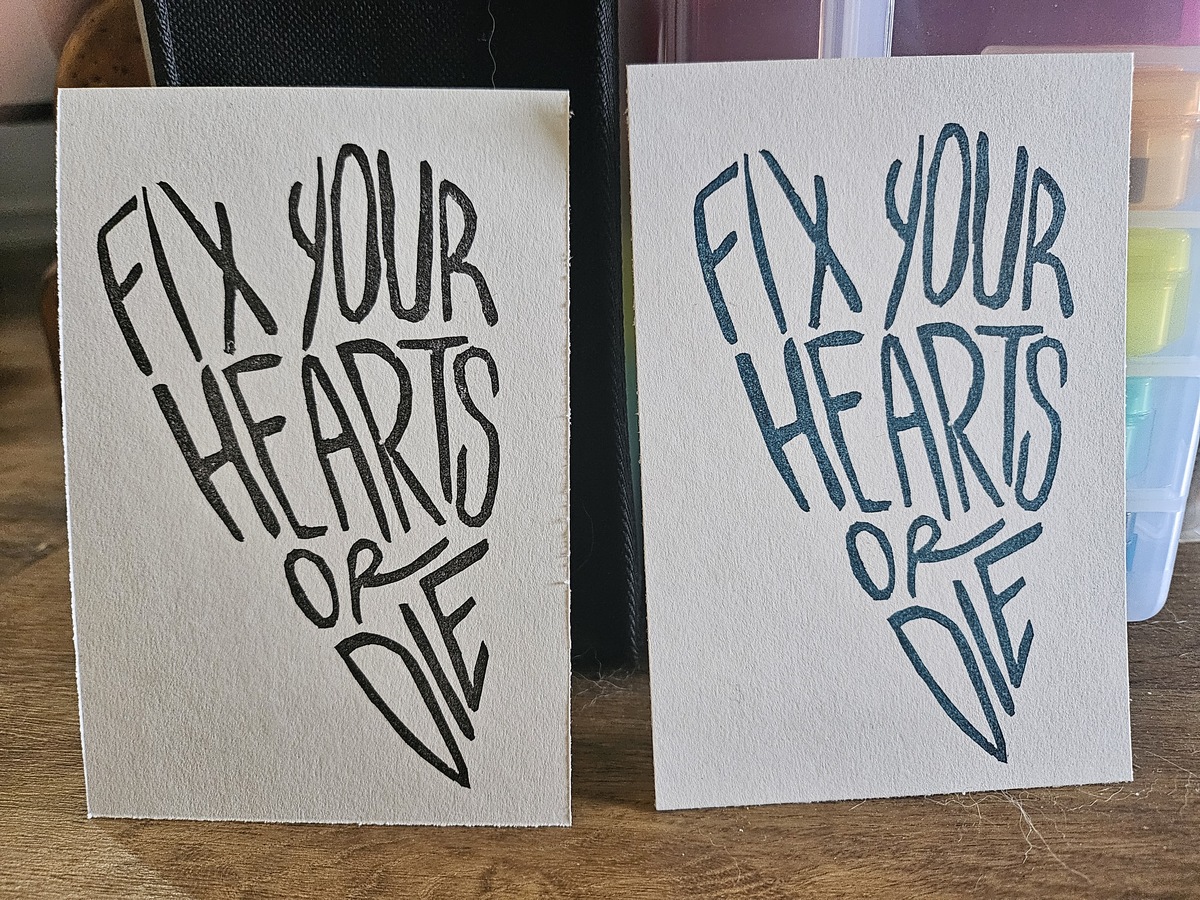 FIX YOUR
HEARTS
OR
DIE
FIX YOUR
HEARTS
OR
DIE